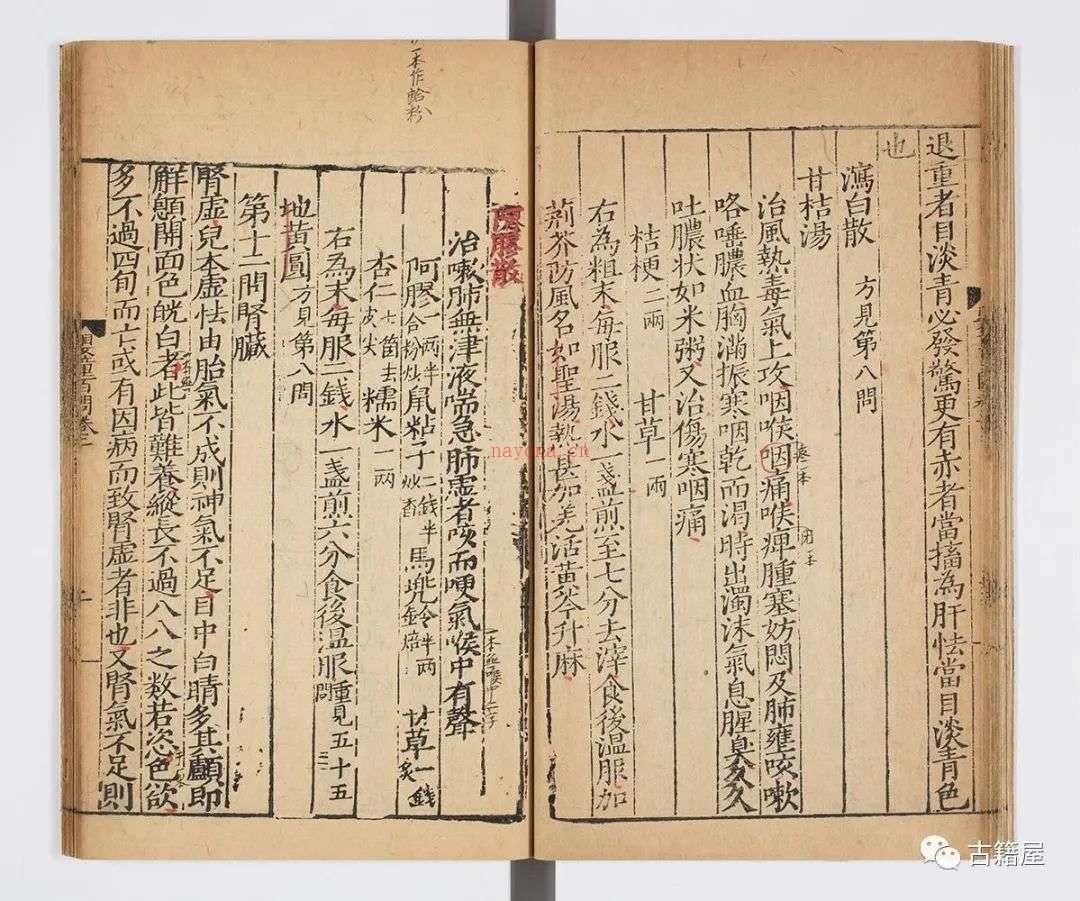 退重者目淡青必發驚更有赤者當搐為肝怯當目淡青色
也
瀉白散 方見第八問
甘桔湯
治風熱毒氣上攻咽喉咽痛喉痺腫塞妨悶及肺壅咳嗽
咯唾膿血胸滿振寒咽乾而渴時出濁沫氣息腥臭久久
吐膿状如米粥又治傷寒咽痛
桔梗二兩 甘草一兩
右為粗末每服二錢水一盞煎至七分去滓食後溫服加
荊芥防風名如聖湯熱甚加羌活黃芩升麻
阿膠散
治嗽肺無津液喘急肺虛者咳而哽氣喉中有聲
阿膠一兩半合粉炒 鼠粘子二錢半炒香 馬兜鈴半兩焙 甘草一錢炙
杏仁七箇去皮尖 糯米一兩
右為末每服二錢水一盞煎六分食後溫服腫見五十五問
地黃圓方見第八問
第十二問腎臟
腎虛兒本虛怯由胎氣不成則神氣不足目中白睛多其顱即
解顖開面色㿠白者此皆難養縱長不過八八之数若恣色欲
多不過四旬而亡或有因病而致腎虛者非也又腎氣不足則
一本作蛤粉
nayona.cn
古籍屋